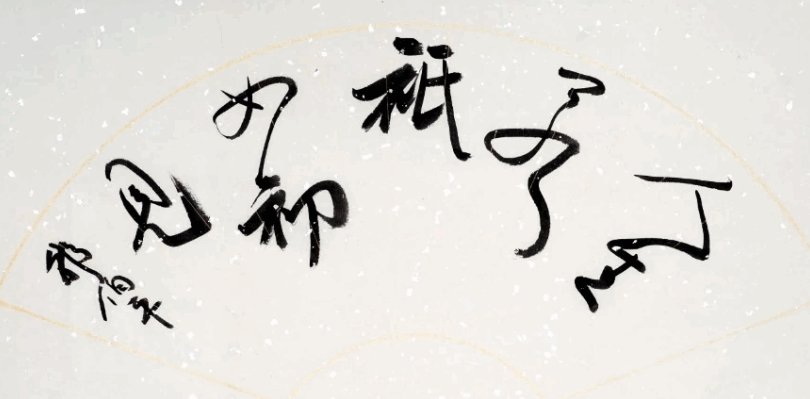 人生
若
祇
如初
見